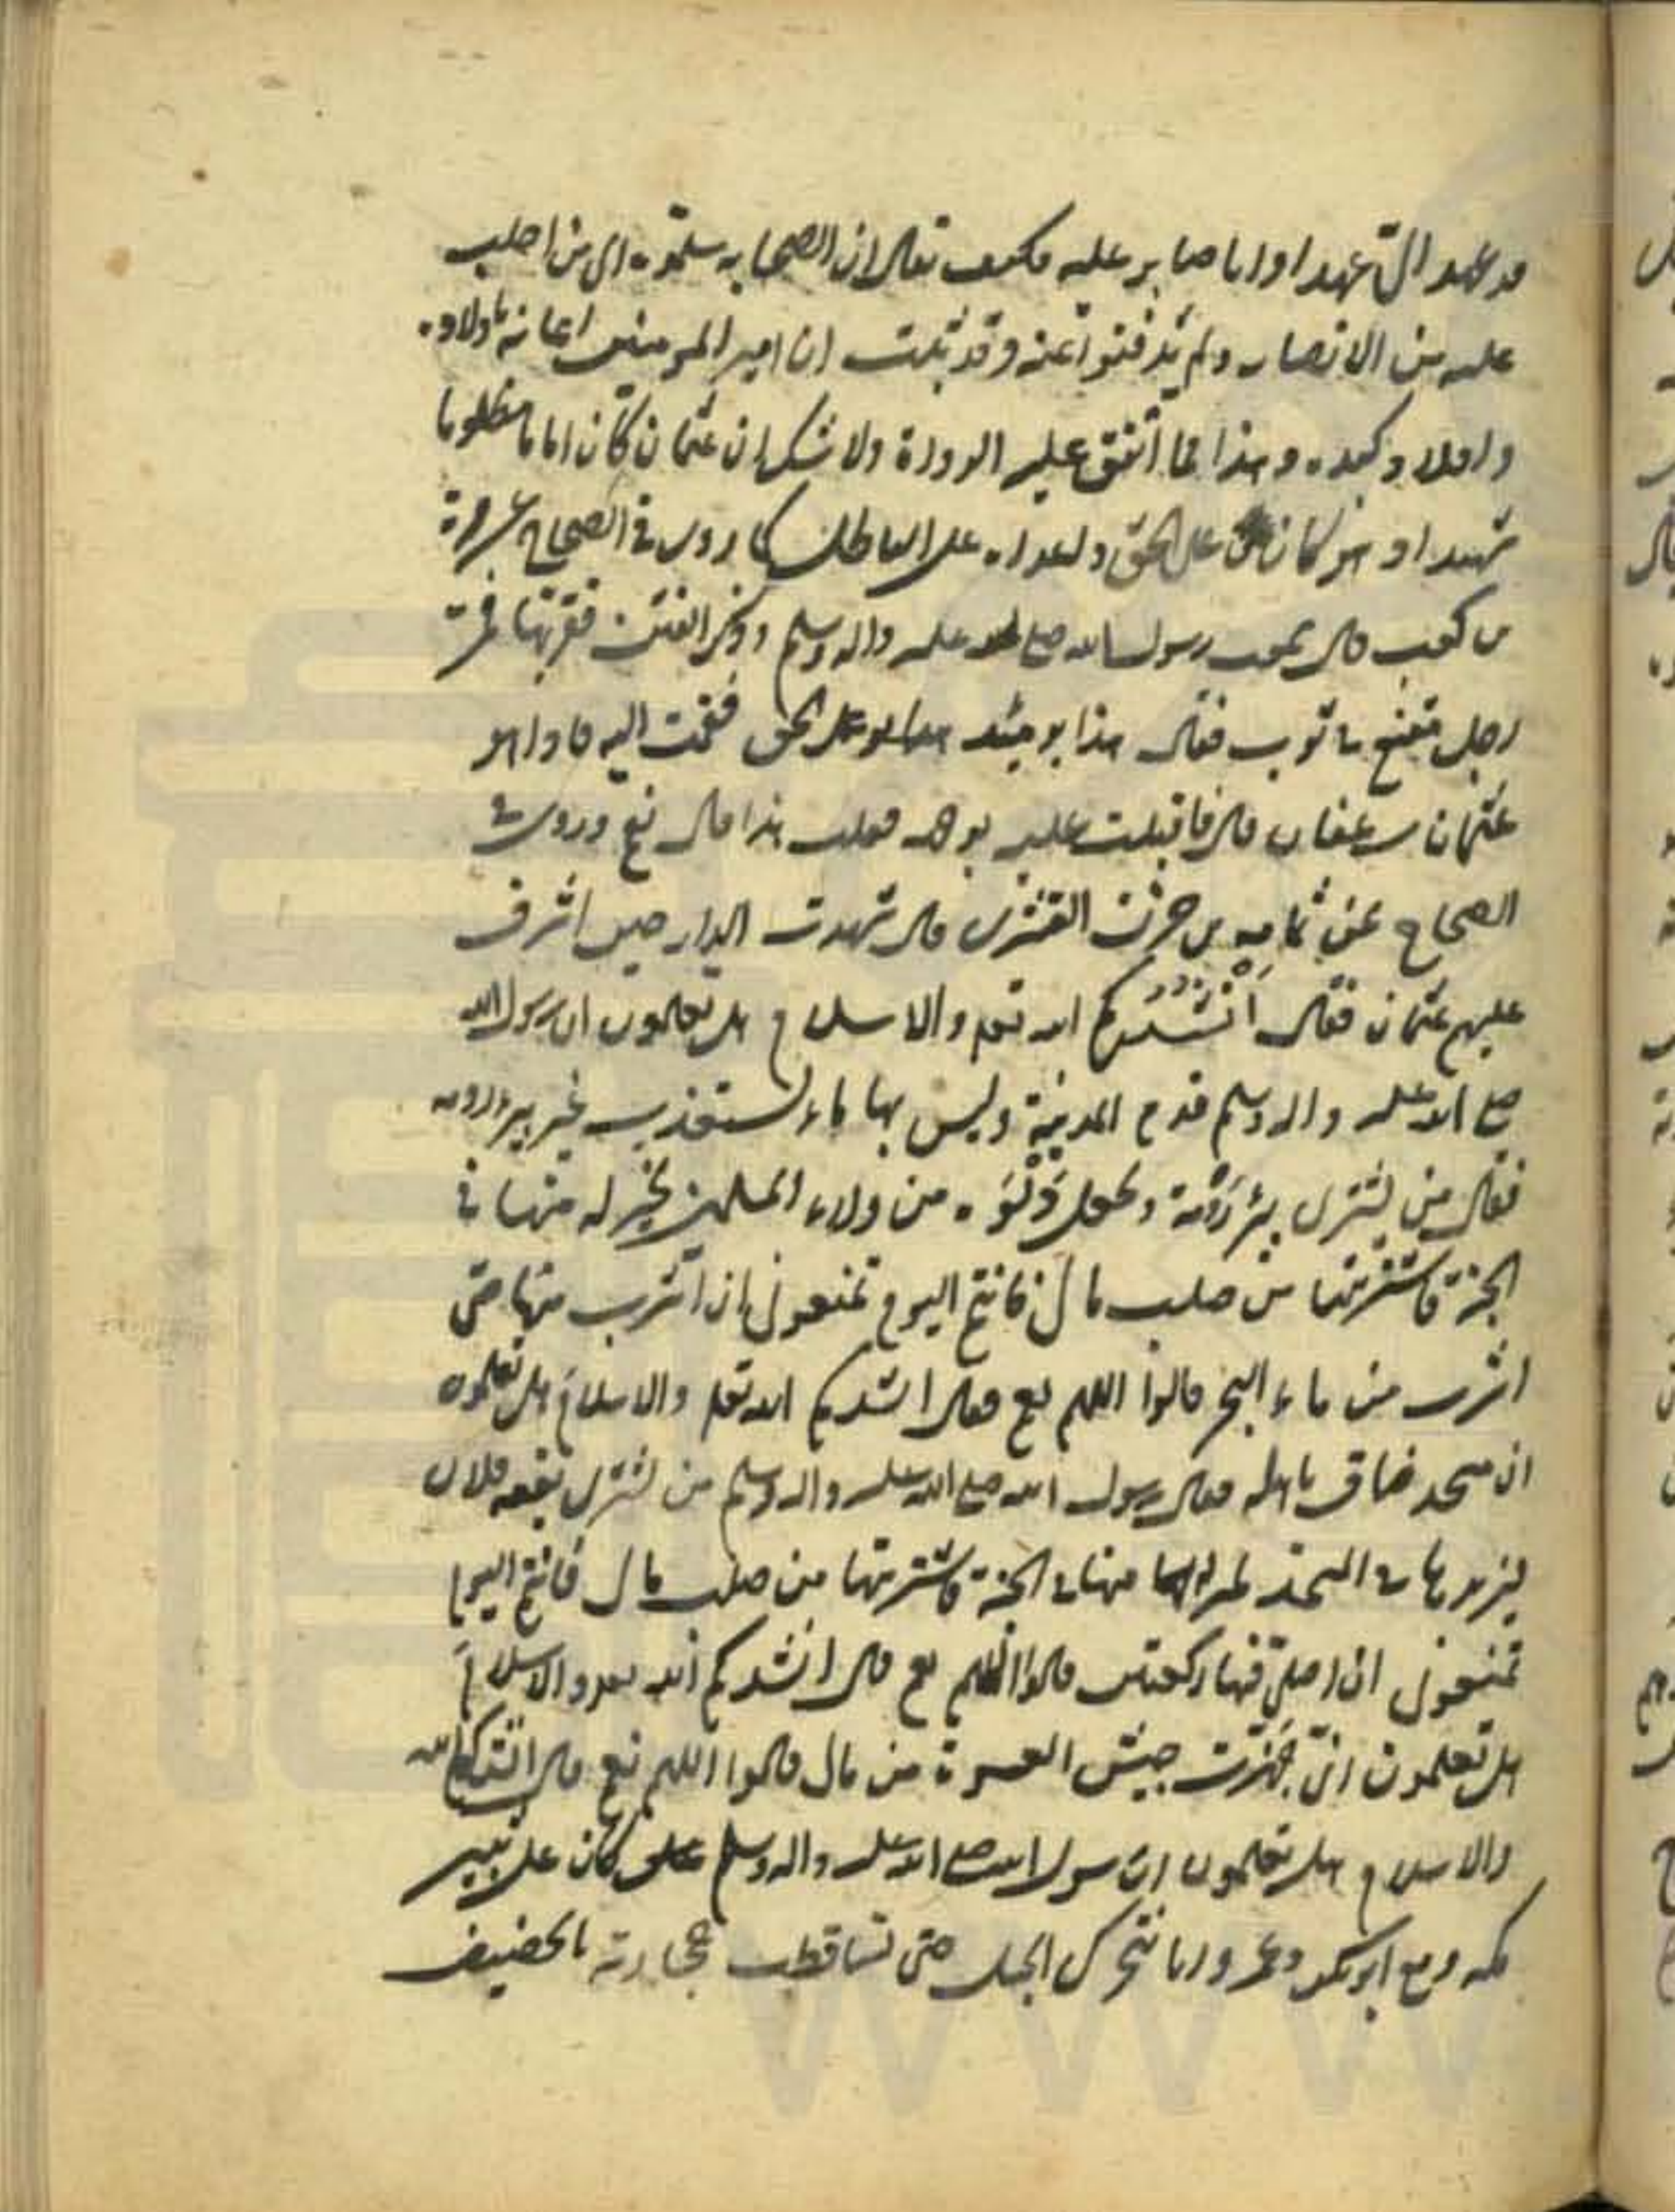 قد عهد الىّ عهدا وانا صابر عليه فكيف يقال ان الصحابه سلّموه اى من اجلب
عليه من الانصار ولم يدفعوا عنه وقد ثبت ان امير المومنين اعانه باولاده
واولاد وكيده وهذا مما اتفق عليه الرواة ولا شك ان عثمان كان اماما مظلوما
شهيدا وهو كان على الحق واعداه على الباطل كما روى فى الصحاح عن مرة
بن كعب قال سمعت رسول الله صلع الله عليه واله وسلم وذكر الفتن فقربها فمرّ
رجل مقنع فى ثوب فقال هذا يومئذ على الحق فقمت اليه فاذا هو
عثمان بن عفان قال فاقبلت عليه بوجهه فقلت هذا قال نعم وروى فى
الصحاح عن ثمامه بن حزن القشيرى قال شهدت الدار حين اشرف
عليهم عثمان فقال اَنْشُدُكم الله تعلى والاسلام هل تعلمون ان رسول الله
صلع الله عليه واله وسلم قدم المدينة وليس بها ماء يستعذب غير بير رومه
فقال من يشترى بئر رُومة ويجعل دَلْوَه من دلاء المسلمين بخير له منها فى
الجنة فاشتريتها من صلب مالى فانتم اليوم تمنعونى ان اشرب منها حتى
اشرب من ماء البحر قالوا اللهم نعم فقال انشدكم الله تعلى والاسلام هل تعلمون
ان مسجد ضاق باهله فقال رسول الله صلع الله عليه واله وسلم من يشترى بقعه فلان
يزيدها فى المسجد بخير له منها فى الجنة فاشتريتها من صلب مالى فانتم اليوم
تمنعونى ان اصلّى فيها ركعتين قالوا اللهم نعم قال انشدكم الله تعلى والاسلام
هل تعلمون انى جهّزت جيش العسرة من مالى قالوا اللهم نعم قال انشدكم الله
والاسلام هل تعلمون ان رسول الله صلع الله عليه واله وسلم كان على ثبير
مكه ومع ابو بكر وعمر وانا فتحرك الجبل حتى تساقطت حجارته بالحضيض